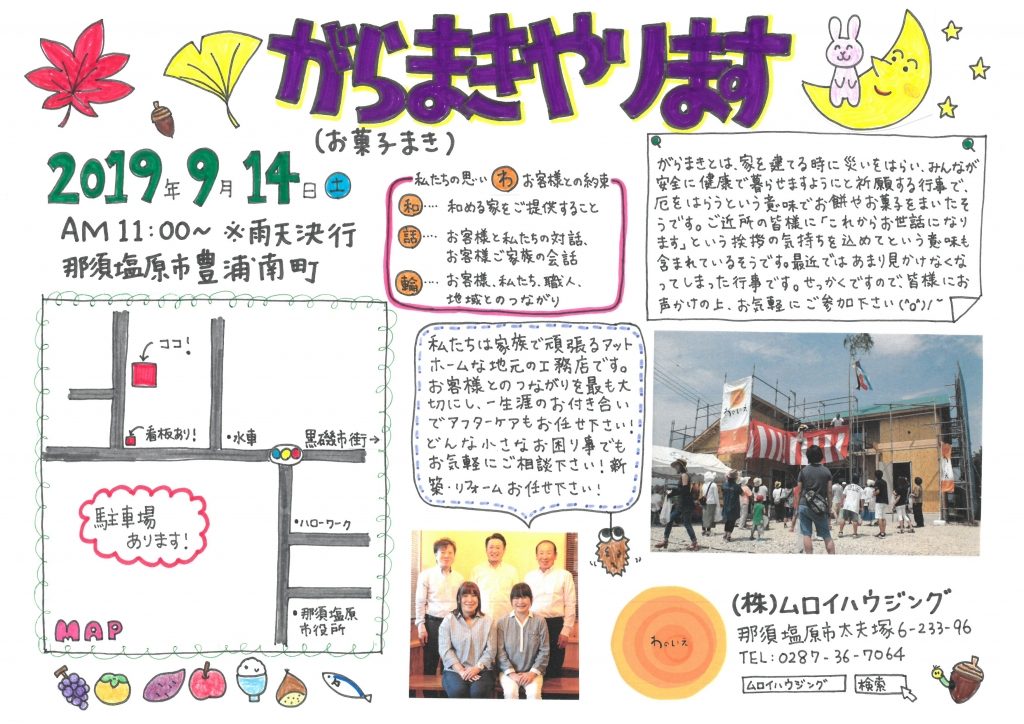 がらまきやります
(お菓子まき)
2019年9月14日(土)
AM11:00~ ※雨天決行
那須塩原市豊浦南町
私たちの思い わ お客様との約束
和…… 和める家をご提供すること
話…… お客様と私たちの対話、
お客様ご家族の会話
輪…… お客様、私たち、職人、
地域とのつながり
がらまきとは、家を建てる時に災いをはらい、みんなが
安全に健康で暮らせますようにと祈願する行事で、
厄をはらうという意味でお餅やお菓子をまいたそ
うです。ご近所の皆様に「これからお世話になり
ます」という挨拶の気持ちを込めてという意味も
含まれているそうです。最近ではあまり見かけなくな
ってしまった行事です。せっかくですので、皆様にお
声かけの上、お気軽にご参加下さい(^o^)/~
ココ!
看板あり!
・水車
黒磯市街→
駐車場
あります!
・ハローワーク
・那須塩原
市役所
MAP
私たちは家族で頑張るアット
ホームな地元の工務店です。
お客様とのつながりを最も大
切にし、一生涯のお付き合い
でアフターケアもお任せ下さい!
どんな小さなお困り事でも
お気軽にご相談下さい!新
築・リフォームお任せ下さい!
わのいえ
わのいえ
(株)ムロイハウジング
那須塩原市太夫塚6-233-96
TEL:0287-36-7064
ムロイハウジング 検索